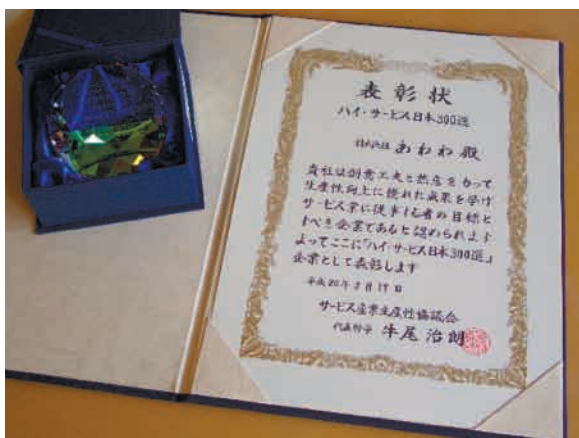 表彰状
ハイ・サービス日本300選
株式会社 あわわ 殿
貴社は創意工夫と熱意をもって
生産性向上に優れた成果を挙げ
サービス業に従事する者の目標と
すべき企業であると認められます
よってここに「ハイ・サービス日本300選」
企業として表彰します
平成20年3月17日
サービス産業生産性協議会
代表幹事 牛尾治朗